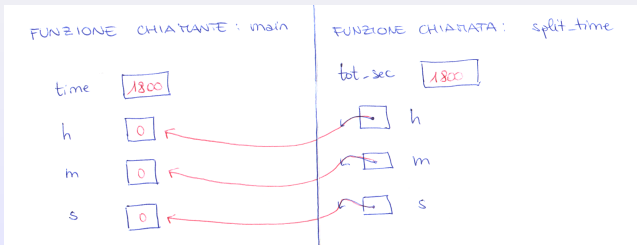 FUNZIONE CHIAMANTE : main
time 1800
h 0
m 0
s 0
FUNZIONE CHIAMATA : split_time
tot_sec 1800
h
m
s